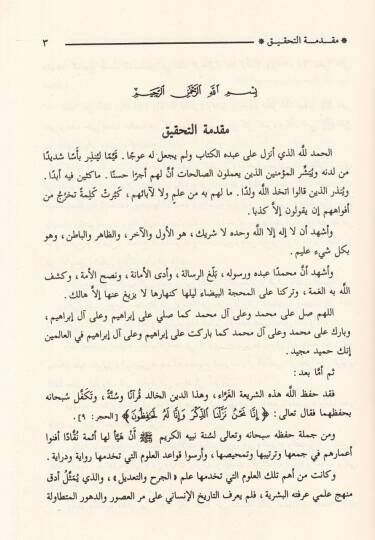 * مقدمة التحقيق * ٣
بسم الله الرحمن الرحيم
مقدمة التحقيق
الحمد للَّه الذي أنزل على عبده الكتاب ولم يجعل له عوجًا . قَيِّمًا ليُنذِر بأسًا شديدًا
من لدنه ويُبَشِّر المؤمنين الذين يعملون الصالحات أنَّ لهم أجرًا حسنًا . ماكثين فيه أبدًا .
ويُنذر الذين قالوا اتخذ اللَّه ولدًا . ما لهم به من علمٍ ولا لآبائهم ، كَبُرَتْ كَلِمةً تخرُجُ من
أفواههم إن يقولون إلاَّ كذبا .
وأشهد أن لا إله إلا اللَّه وحده لا شريك ، هو الأول والآخر ، والظاهر والباطن ، وهو
بكل شيء عليم .
وأشهد أنَّ محمدًا عبده ورسوله ، بَلَّغ الرسالة ، وأدى الأمانة ، ونصح الأمة ، وكشف
اللَّه به الغمة ، وتركنا على المحجة البيضاء ليلها كنهارها لا يزيغ عنها إلاَّ هالك .
اللهم صل على محمد وعلى آل محمد كما صلي على إبراهيم وعلى آل إبراهيم ،
وبارك على محمد وعلى آل محمد كما باركت على إبراهيم وعلى آل إبراهيم في العالمين
إنك حميد مجيد .
ثم أمَّا بعد :
فقد حفظ اللَّه هذه الشريعة الغَرَّاء ، وهذا الدين الخالد قُرآنًا وسُنَّةً ، وتَكَفَّل سُبحانه
بحفظهما فقال تعالى : ﴿ إِنَّا نَحْنُ نَزَّلْنَا الذِّكْرَ وَإِنَّا لَهُ لَحَافِظُونَ ﴾ [ الحجر : ٩ ] .
ومن جملة حفظه سبحانه وتعالى لسُنة نبيه الكريم ﷺ أَنْ هَيَّأَ لها أئمة نُقَّادًا أفنوا
أعمارهم في جمعها وترتيبها وتمحيصها ، وأرسوا قواعد العلوم التي تخدمها رواية ودراية .
وكانت من أهم تلك العلوم التي تخدمها علم « الجرح والتعديل » ، والذي يُمَثِّلُ أدق
منهج علمي عرفته البشرية ، فلم يعرف التاريخ الإنساني على مر العصور والدهور المتطاولة